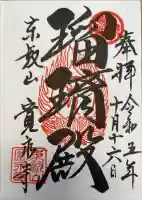 奉拝
令和五年
十月十六日
瑠璃殿
東叡山
寛永寺